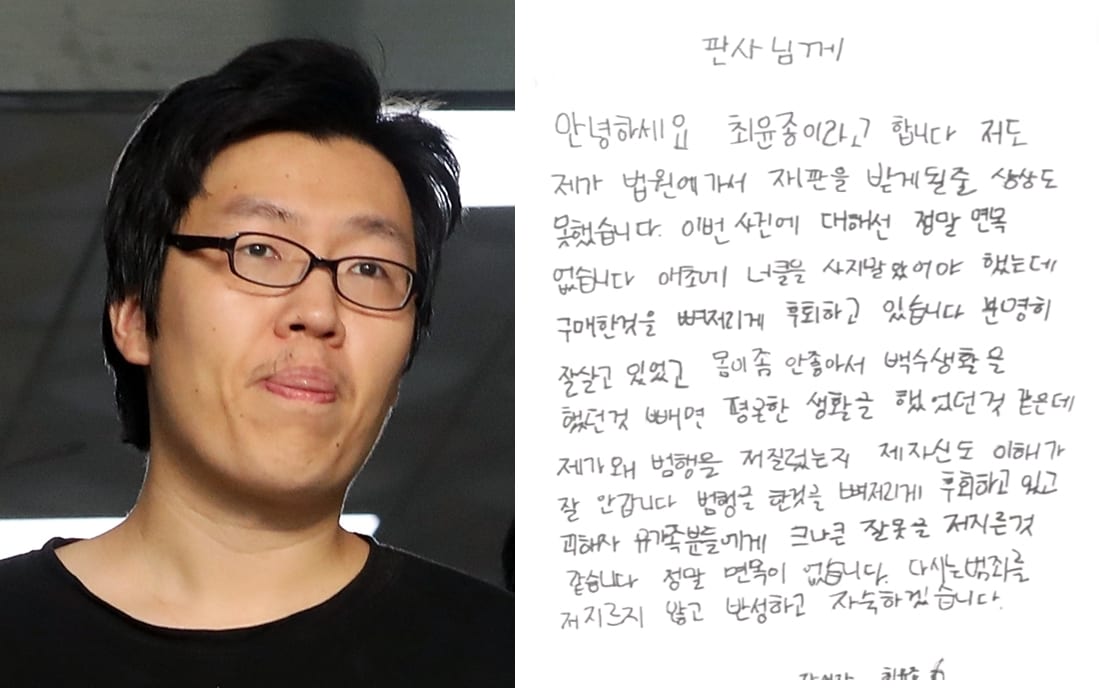 판사님께
안녕하세요 최윤종이라고 합니다 저도
제가 법원에가서 재판을 받게될줄 상상도
못했습니다. 이번 사건에 대해선 정말 면목
없습니다 애초에 너클을 사지말았어야 했는데
구매한것을 뼈저리게 후회하고 있습니다 분명히
잘살고 있었고 몸이좀 안좋아서 백수생활을
했던것 빼면 평온한 생활을 했었던것 같은데
제가왜 범행을 저질렀는지 제자신도 이해가
잘 안갑니다 범행을 한것을 뼈저리게 후회하고 있고
피해자 유가족분들에게 크나큰 잘못을 저지른것
같습니다 정말 면목이 없습니다. 다시는범죄를
저지르지 않고 반성하고 자숙하겠습니다.